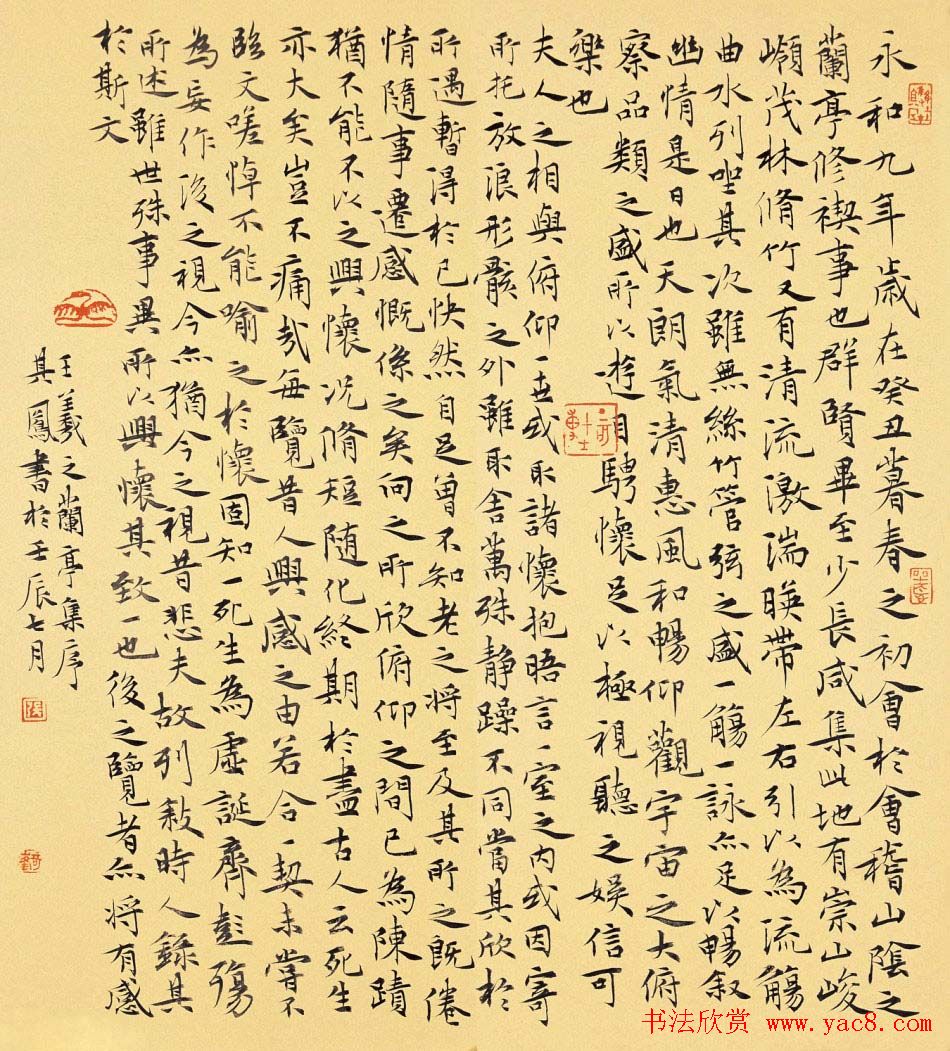 永和九年歲在癸丑暮春之初會於會稽山陰之
蘭亭修禊事也群賢畢至少長咸集此地有崇山峻
嶺茂林脩竹又有清流激湍暎帶左右引以為流觴
曲水列坐其次雖無絲竹管弦之盛一觴一詠亦足以暢叙
幽情是日也天朗氣清惠風和暢仰觀宇宙之大俯
察品類之盛所以遊目騁懷足以極視聽之娛信可
樂也
夫人之相與俯仰一世或取諸懷抱晤言一室之內或因寄
所托放浪形骸之外雖取舍萬殊静躁不同當其欣於
所遇暫得於己快然自足曾不知老之將至及其所之既倦
情隨事遷感慨係之矣向之所欣俯仰之間已為陳蹟
猶不能不以之興懷况脩短随化終期於盡古人云死生
亦大矣豈不痛哉每覽昔人興感之由若合一契未嘗不
臨文嗟悼不能喻之於懷固知一死生為虛誕齊彭殤
為妄作後之視今亦猶今之視昔悲夫故列敍時人錄其
所述雖世殊事異所以興懷其致一也後之覽者亦將有感
於斯文
王羲之蘭亭集序
其鳳書於壬辰七月
书法欣赏 www.yac8.com